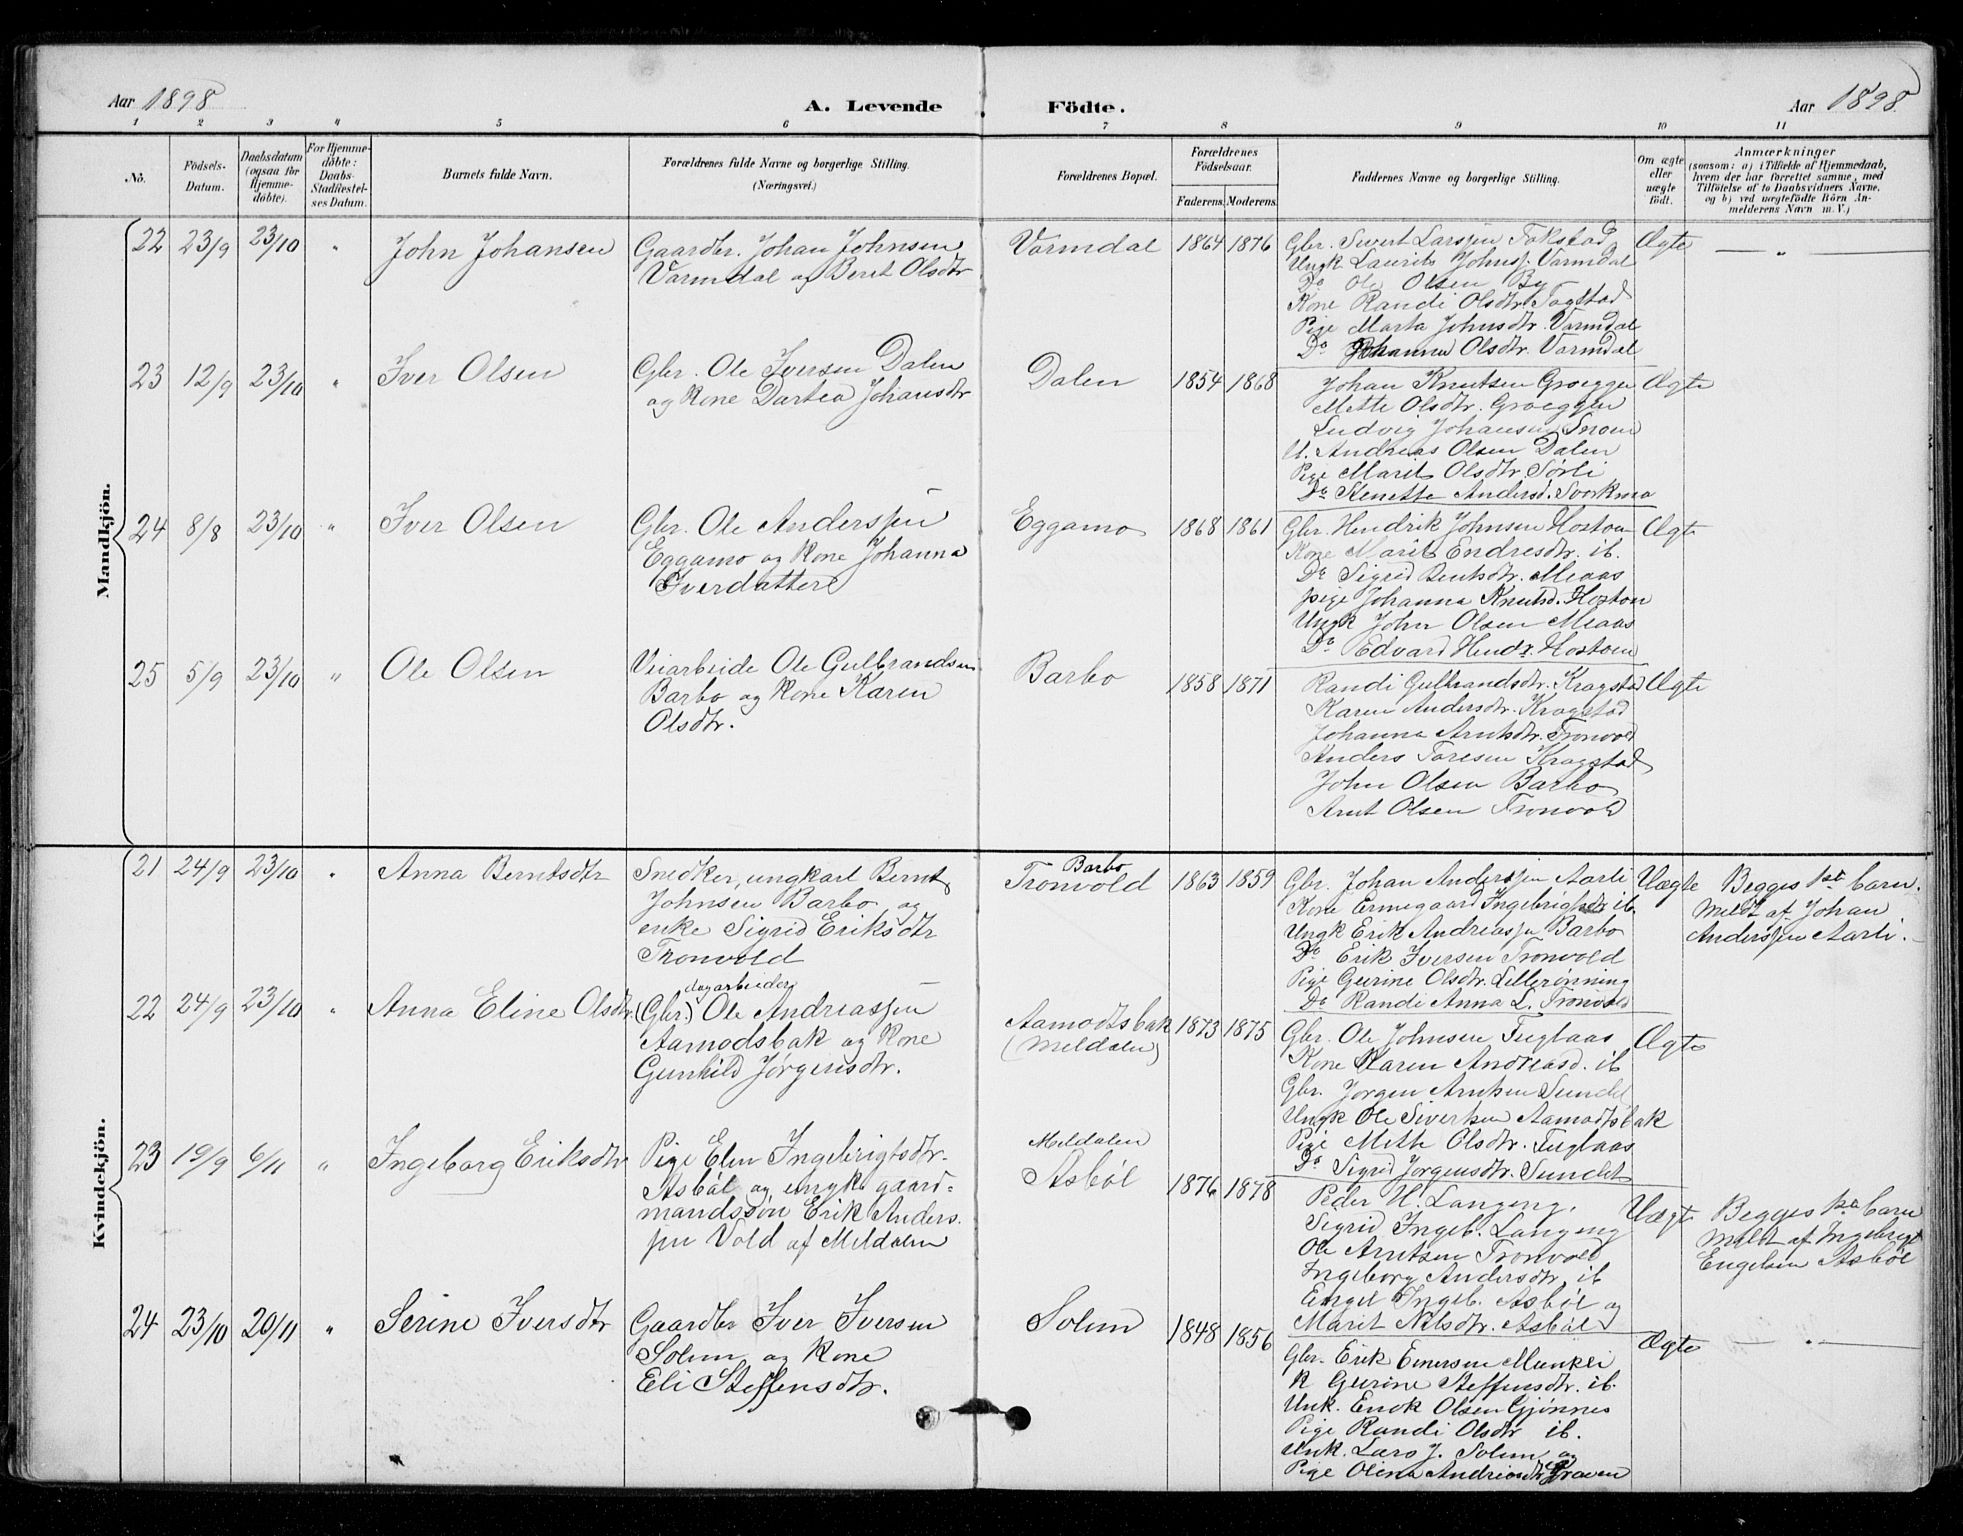 Aar 1898
A. Levende Födte.
Aar 1898
1 2 3 4 5 6 7 8 9 10 11
No.
Födsels-Datum.
Daabsdatum (ogsaa for Hjemme-döbte).
For Hjemme-döbte: Daabs-Stadfæstel-ses Datum.
Barnets fulde Navn.
Forældrenes fulde Navne og borgerlige Stilling.
(Næringsvei.)
Forældrenes Bopæl.
Forældrenes Födselsaar.
Faderens. Moderens.
Faddernes Navne og borgerlige Stilling.
Om ægte eller uægte födt.
Anmærkninger
(saasom: a) i Tilfælde af Hjemmedaab,
hvem der har forrettet samme, med
Tilföielse af to Daabsvidners Navne,
og b) ved uægtefödte Börn An-
melderens Navn m. V.)
Mandkjön.
22 23/9 23/10 " John Johansen
Gaardbr. Johan Johnsen
Varmdal og Beret Olsdtr
Varmdal 1864 1876
Gbr. Sivert Larssen Fokstad
Ungk Laurits Johnss. Varmdal
Do Ole Olsen By
Kone Randi Olsdtr. Fogstad
Pige Marta Johnsdtr. Varmdal
Do Johanna Olsdtr. Varmdal
Ægte — " —
23 12/9 23/10 " Iver Olsen
Gbr. Ole Iversen Dalen
og Kone Dartea Johansdtr
Dalen 1854 1868
Johan Knutsen Groeggen
Mette Olsdtr. Groeggen
Ludvig Johansen Snoen
U. Andreas Olsen Dalen
Pige Marit Olsdtr. Sørli
Do Stenette Andersd. Svorkmo
Ægte
24 8/8 23/10 " Iver Olsen
Gbr. Ole Anderssen
Eggamo og Kone Johanna
Iverdatter
Eggamo 1868 1861
Gbr. Hendrik Johnsen Hoston
Kone Marit Endresdtr. ib.
Do Sigrid Bentsdtr. Meaas
pige Johanna Knutsd. Hoston
Ungk John Olsen Meaas
Do Edvard Hendr. Hoston
Ægte
25 5/9 23/10 " Ole Olsen
Veiarbeide Ole Gulbrandsen
Barbo og Kone Karen
Olsdtr.
Barbo 1858 1871
Randi Gulbrandsdtr. Kragstad
Karen Andersdtr. Kragstad
Johanna Arntsdtr. Tronvold
Anders Toresen Kragstad
John Olsen Barbo
Arnt Olsen Tronvold
Ægte
Kvindekjön.
21 24/9 23/10 " Anna Berntsdtr
Snedker, ungkarl Bernt
Johnsen Barbo og
enke Sigrid Eriksdtr
Tronvold
Barbo
Tronvold 1863 1859
Gbr. Johan Anderssen Aarli
Kone Ermegaard Ingebrigtsdtr ib.
Ungk Erik Andreassen Barbo
Do Erik Iversen Tronvold
Pige Gurine Olsdtr. Lillerønning
Do Randi Anna L. Tronvold
Uægte
Begges 1ste barn.
Meldt af Johan
Anderssen Aarli.
22 24/9 23/10 " Anna Eline Olsdtr.
dagarbeider
(Gbr.) Ole Andreassen
Aamodsbak og Kone
Gunhild Jørgensdtr.
Aamodtsbak
(Meldalen) 1873 1875
Gbr. Ole Johnsen Fuglaas
Kone Karen Andreasd. ib
Gbr. Jørgen Arntsen Sundet
Ungk Ole Sivertsen Aamodtsbak
Pige Mette Olsdtr. Fuglaas
Do Sigrid Jørgensdtr. Sundet
Ægte
23 19/9 6/11 " Ingeborg Eriksdtr
Pige Elen Ingebrigtsdtr.
Asbøl og ungk. gaard-
mandssøn Erik Anders.
sen Vold af Meldalen
Meldalen
Asbøl 1876 1878
Peder H. Langeng.
Sigrid Ingeb. Langeng
Ole Arntsen Tronvold
Ingeborg Andersdtr. ib
Engel Ingeb. Asbøl og
Marit Nilsdtr. Asbøl
Uægte
Begges 1ste barn
Meldt af Ingebrigt
Engelsen Asbøl
24 23/10 20/11 " Serine Iversdtr
Gaardbr Iver Iversen
Solem og Kone
Eli Steffensdtr.
Solem 1848 1856
Gbr. Erik Einersen Munkli
K Gurine Steffensdtr. ib.
Unk. Enok Olsen Gjønnes
Pige Randi Olsdtr ib.
Unk. Lars J. Solem og
Pige Olina Andreasdtr Graven
Ægte — " —